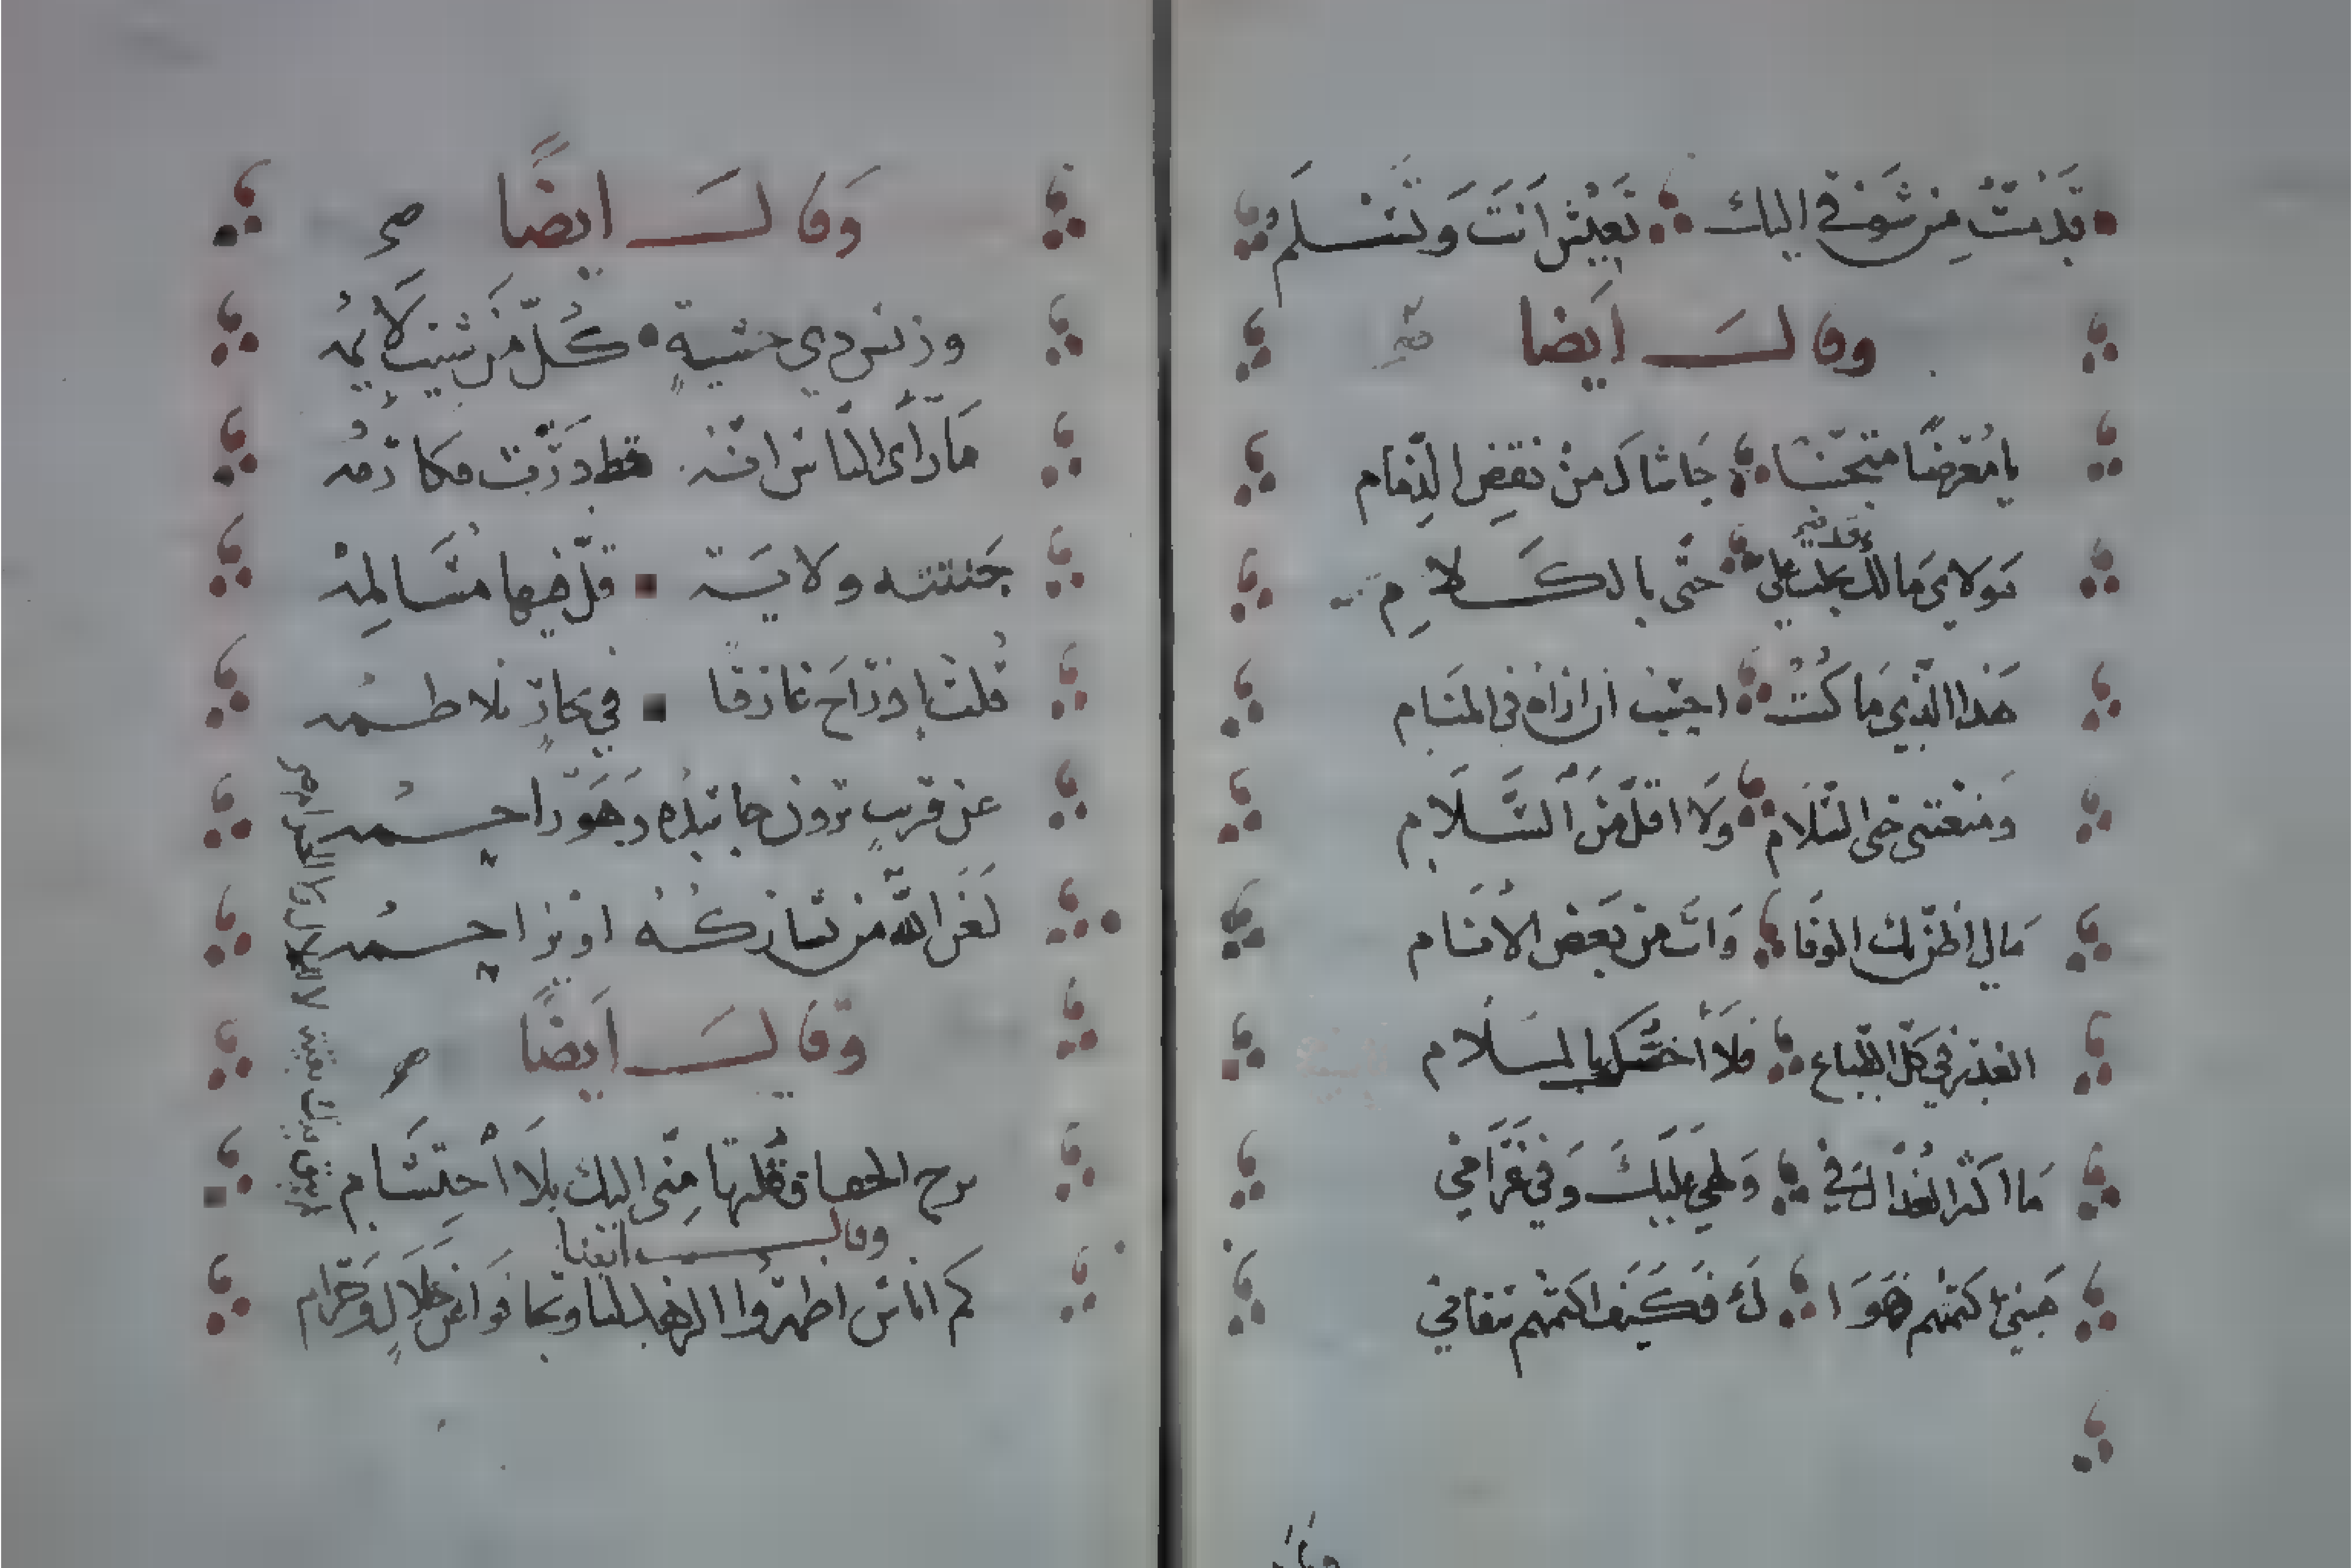 قد مت من شوقي اليك تعيش انت وتسلم
وقال ايضا
يا معرضا متجنبا حاشاك من نقض الذمام
مولاي مالك علي حتى بالكلام
هذا الذي ما كنت احسب ان اراه في المنام
ومنعتني حتى السلام ولا اقل من السلام
مالي اظن بك الوفا وانت من بعض الانام
الغدر في كل الطباع فلا اخصك بالملام
ما اكثر العذال لي في ولهي عليك وفي غرامي
هبني كتمتهم هوا ك فكيف اكتمهم سقامي
وقال ايضا
وزنيس دي خسية كل من شيت لايمه
ما راى الناس انه قط درت مكارمه
جنته ولاية قل فيها مسالمه
قلت اذ راح غارقا في بحار تلاطمه
عن قريب ترون حاسده وهو راحمه
لعن الله من تشاركه او يزاحمه
وقال ايضا
برح الخفا وقلتها مني اليك بلا احتشام
وقال ايضا
كم اناس اظهروا الزهد لنا وتجافوا عن حلال وحرام